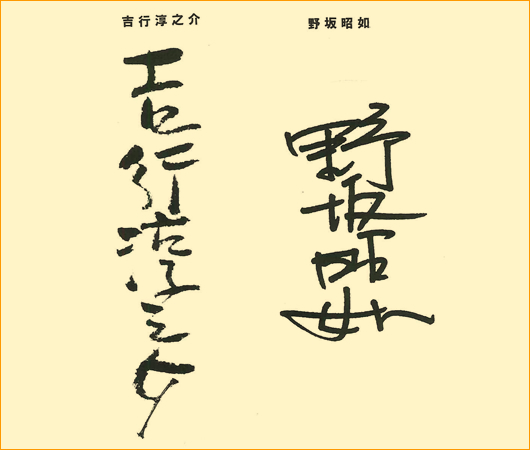 野坂昭如
野坂昭如
吉行淳之介
吉行淳之介